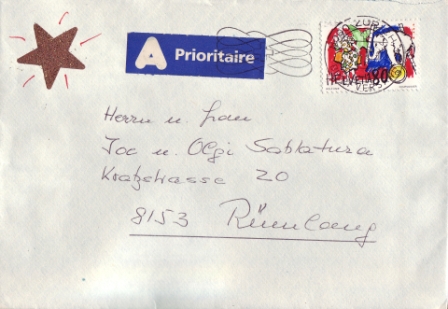 A Prioritaire
HELVETIA 80
Herrn u. Frau
Joe u. Olgi Sobkatura
Kratzstrasse 20
8153 Rümlang